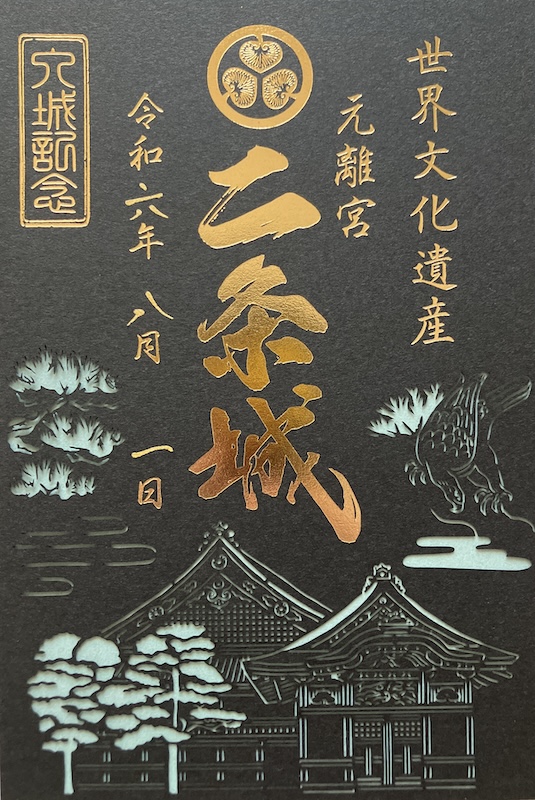 世界文化遺産
元離宮
二条城
令和六年 八月 一日
入城記念